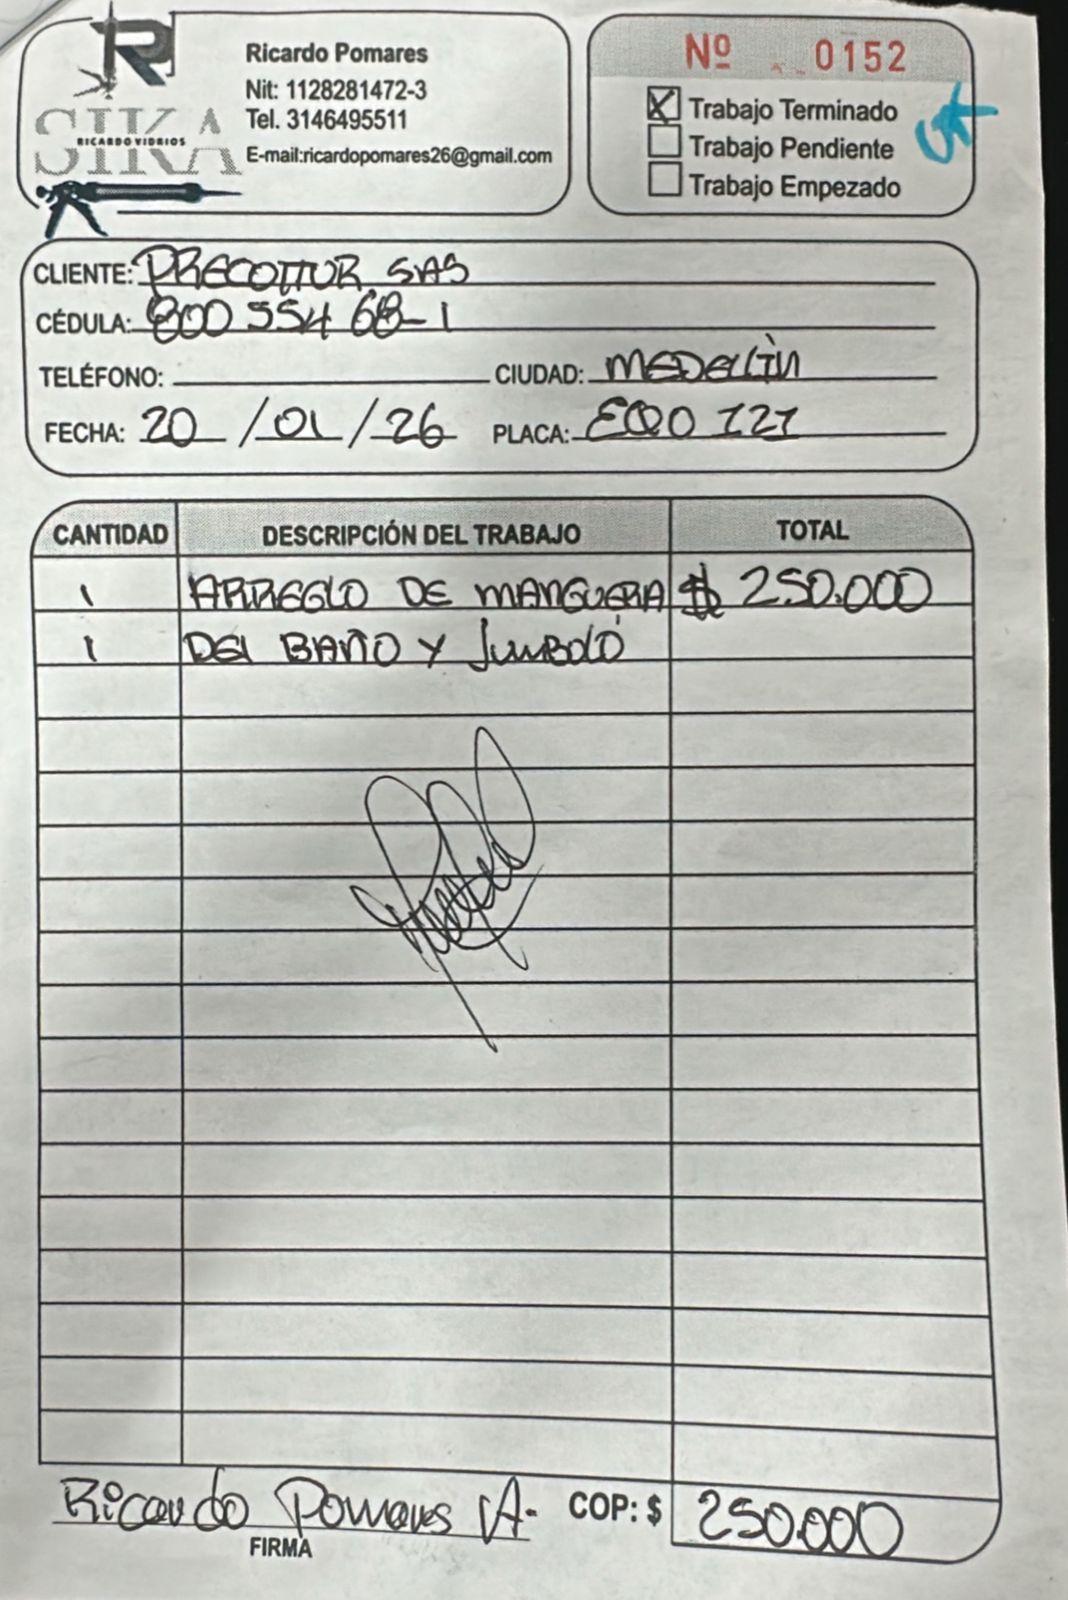 R
SIKA
RICARDO VIDRIOS
Ricardo Pomares
Nit: 1128281472-3
Tel. 3146495511
E-mail:ricardopomares26@gmail.com
Nº 0152
X Trabajo Terminado
Trabajo Pendiente
Trabajo Empezado
CLIENTE: PRECOTTUR SAS
CÉDULA: 800 554 68-1
TELÉFONO: CIUDAD: MEDELLÍN
FECHA: 20 / 01 / 26 PLACA: EQO 121
CANTIDAD DESCRIPCIÓN DEL TRABAJO TOTAL
1 ARREGLO DE MANGUERA $ 250.000
1 DEL BAÑO Y
Ricardo Pomares A. COP: $ 250.000
FIRMA